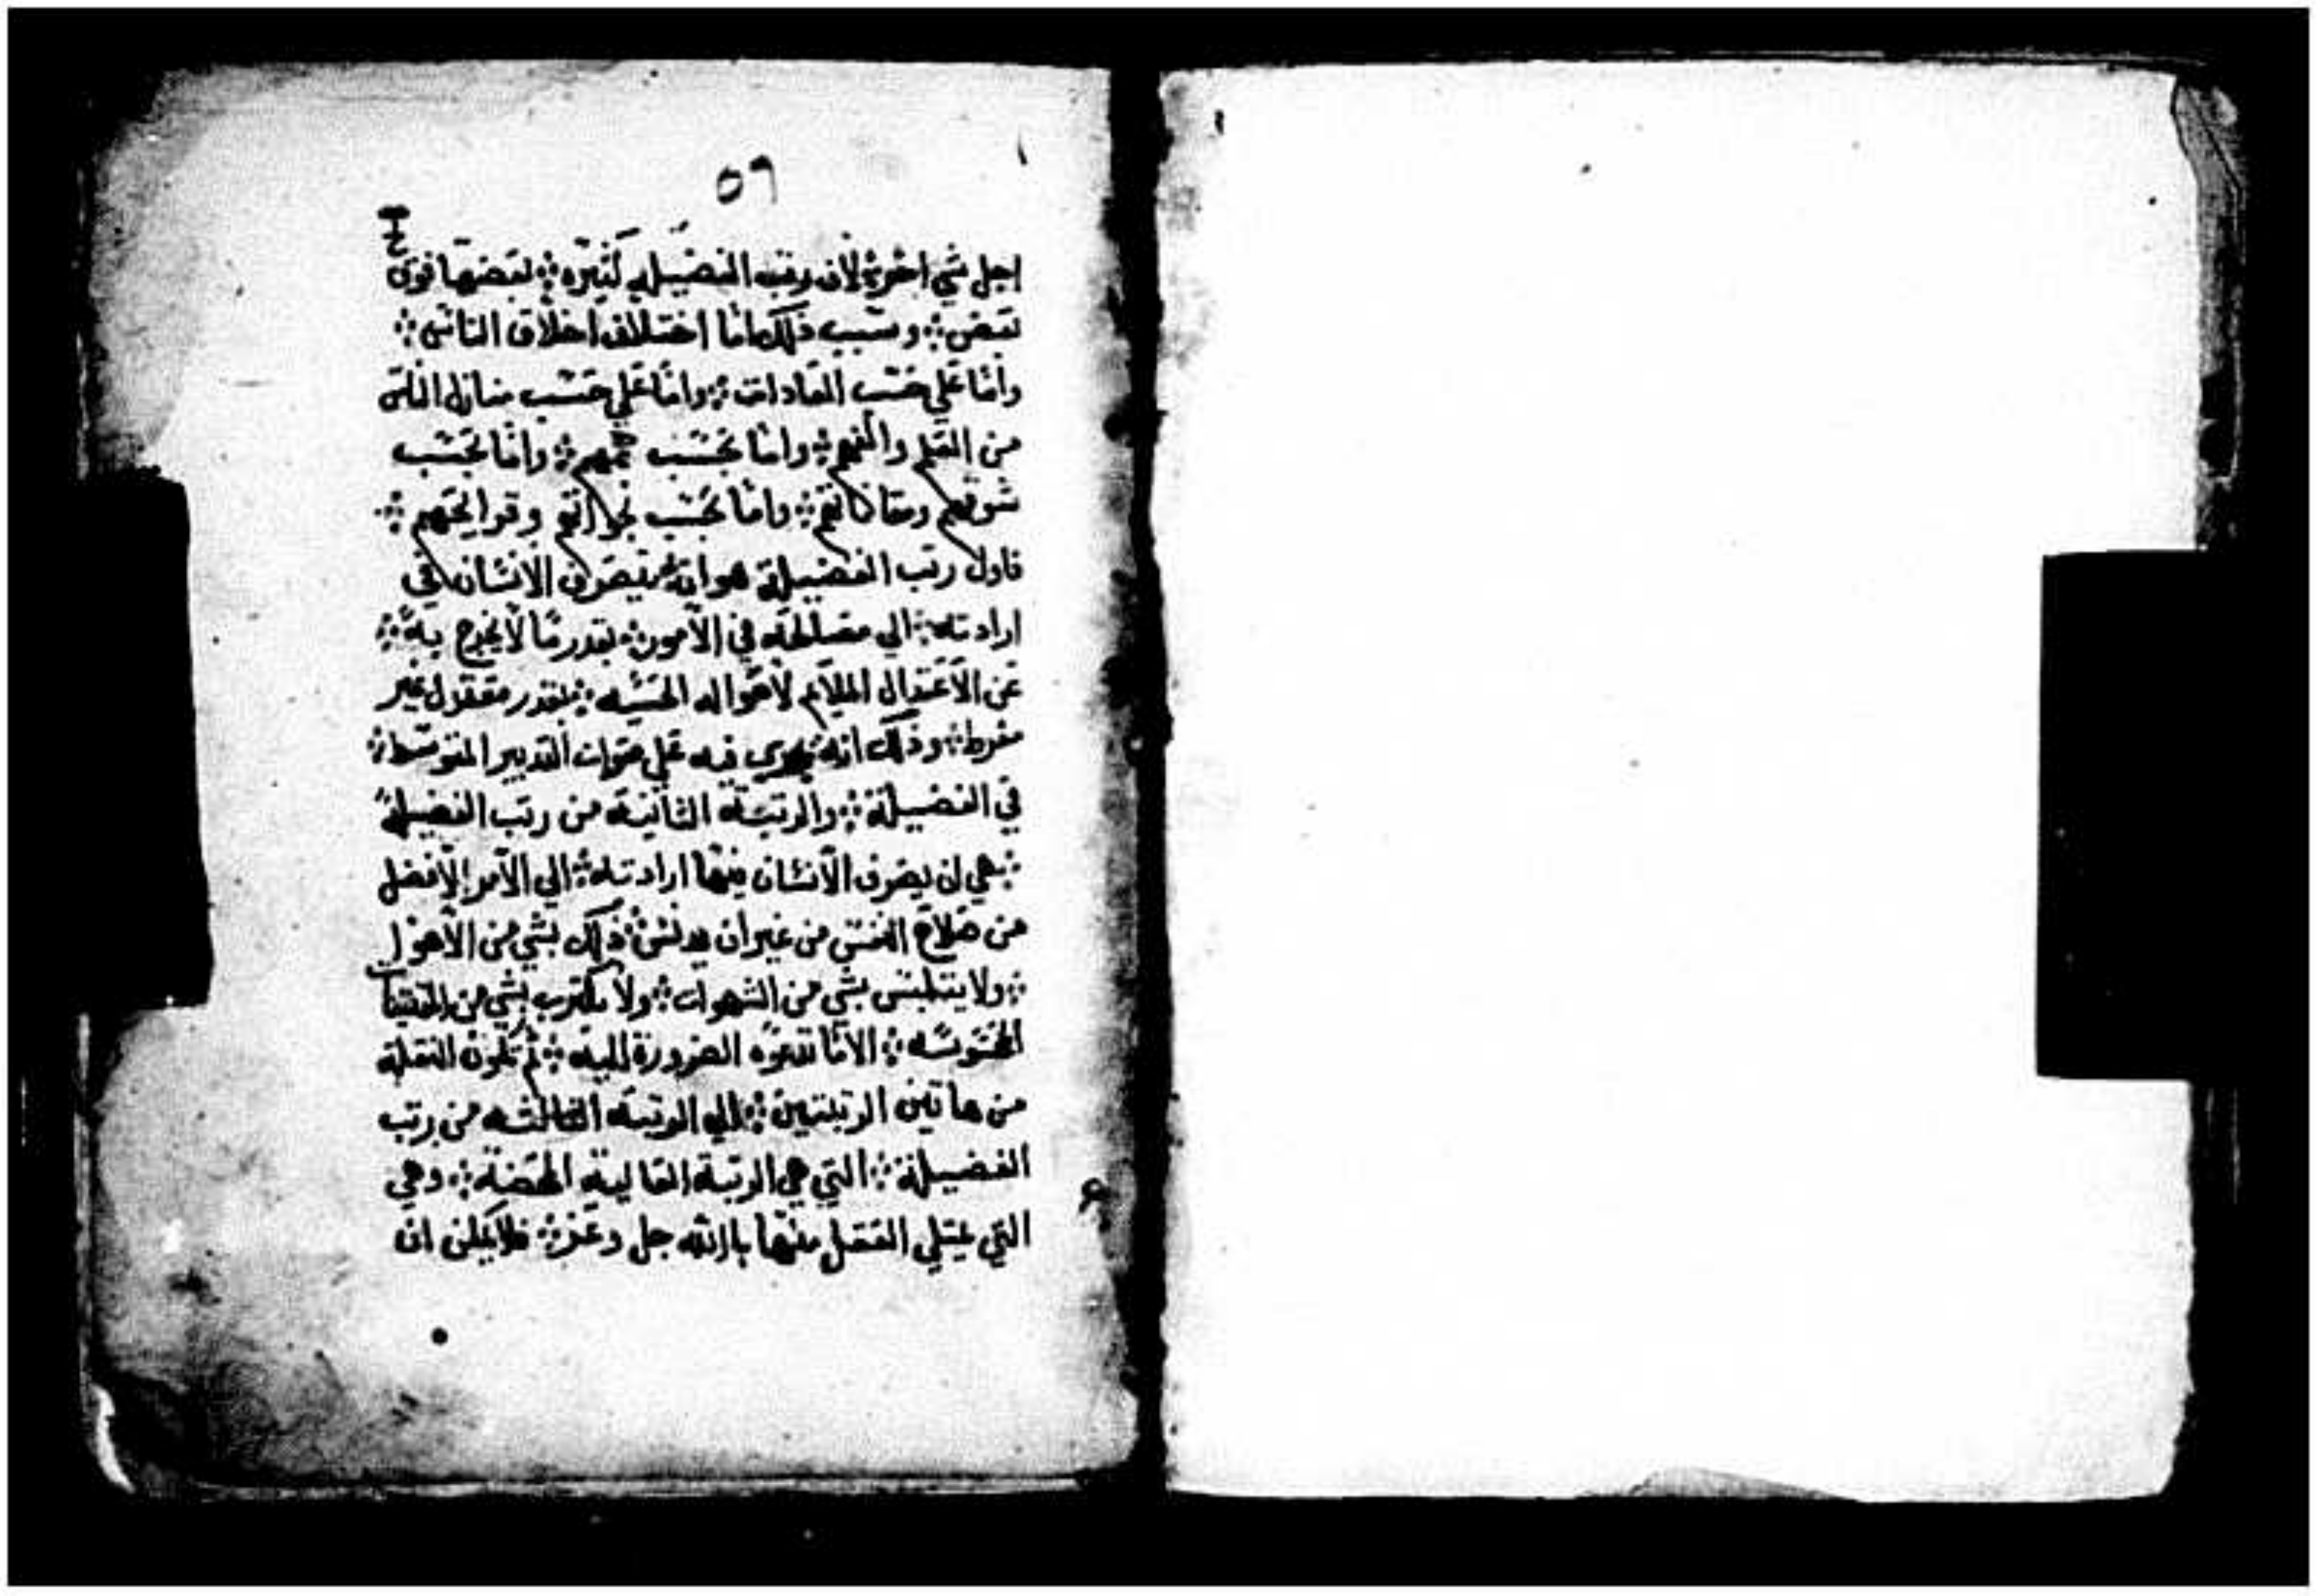 ٥٦
اجل شي اخر؛ لان رتب الفضيله كثيره؛ بعضها فوق
بعض؛ وسبب ذلك اما اختلاف اخلاق الناس؛
واما علي حسب العادات؛ واما علي حسب منازل الناس
من العلم والفهم؛ واما بحسب هممهم؛ واما بحسب
شوقهم ومعاناتهم؛ واما بحسب نحايزهم وقرايحهم؛
فاول رتب الفضيلة هو انه يصرف الانسان في
ارادته؛ الي مصالحه في الامور؛ بقدر ما لا يخرج به؛
عن الاعتدال الملايم لاحواله الحسيه؛ بقدر معقول غير
مفرط؛ وذلك انه يجري فيه علي صواب التدبير المتوسط؛
في الفضيلة؛ والرتبة الثانية من رتب الفضيلة
؛ هي ان يصرف الانسان فيها ارادته؛ الي الامر الافضل
من صلاح النفس من غير ان يدنس؛ ذلك بشي من الاهوا
؛ ولا يتلبس بشي من الشهوات؛ ولا يكترث بشي من المقتنيات
المحسوسه؛ الا ما تدعوه الضرورة اليه؛ ثم تكون النقلة
من هاتين الرتبتين؛ الي الرتبة الثالثه من رتب
الفضيلة؛ التي هي الرتبة العالية المحضة؛ وهي
التي يمتلي العقل منها بالله جل وعز؛ فلا يمكن ان